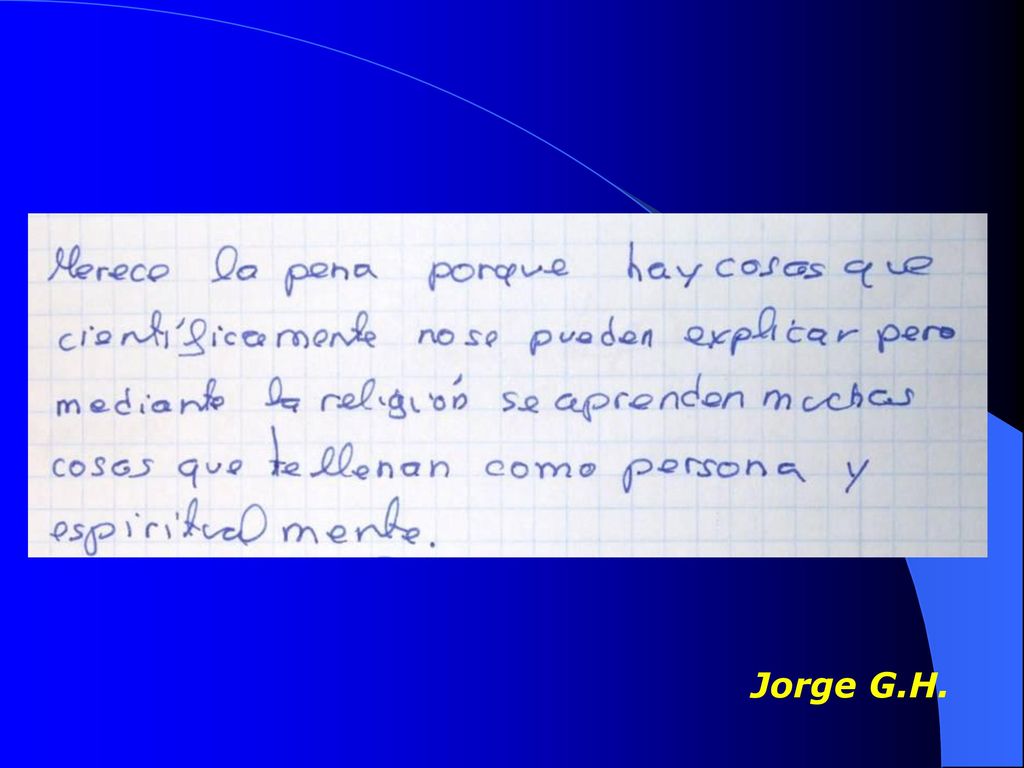 Merece la pena porque hay cosas que
científicamente no se pueden explicar pero
mediante la religión se aprenden muchas
cosas que te llenan como persona y
espiritualmente.
Jorge G.H.